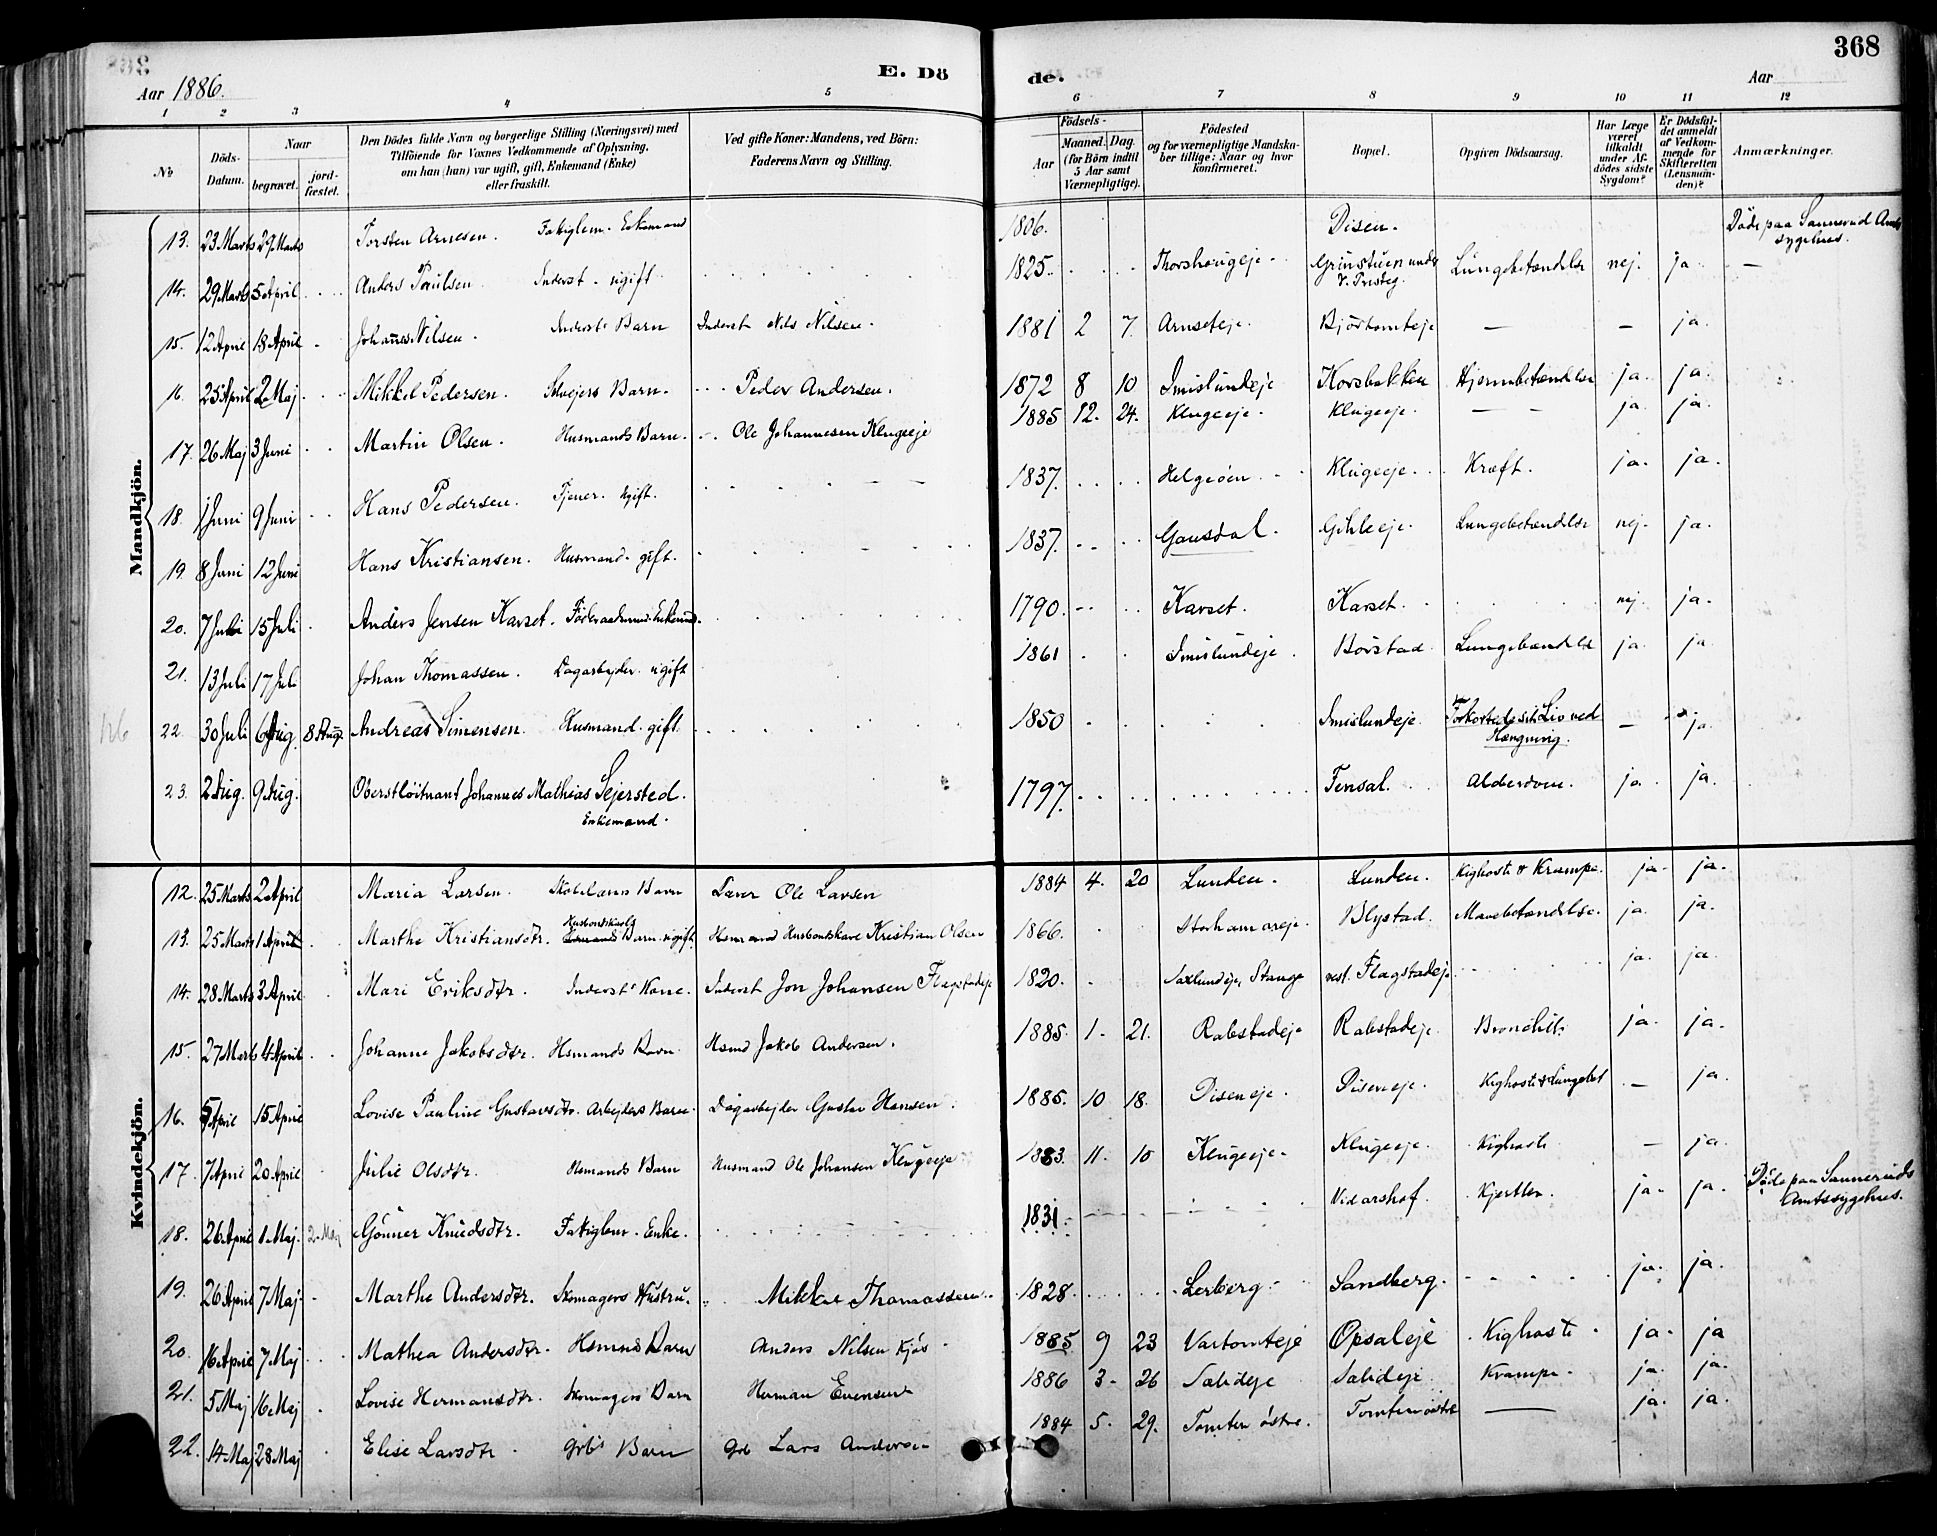 368
E. Dö
de.
Aar 1886.
Aar
1 2 3 4 5 6 7 8 9 10 11 12
No
Döds-Datum.
Naar
begravet.
jord-fæstet.
Den Dödes fulde Navn og borgerlige Stilling (Næringsvei) med
Tilföiende for Voxnes Vedkommende af Oplysning,
om han (hun) var ugift, gift, Enkemand (Enke)
eller fraskilt.
Ved gifte Koner: Mandens, ved Börn:
Faderens Navn og Stilling.
Födsels-
Aar
Maaned. Dag
(for Börn indtil
5 Aar samt
Værnepligtige).
Födested
og for værnepligtige Mandska-
ber tillige: Naar og hvor
konfirmeret.
Bopæl.
Opgiven Dödsaarsag.
Har Læge
været
tilkaldt
under Af-
dödes sidste
Sygdom?
Er Dödsfal-
det anmeldt
af Vedkom-
mende for
Skifteretten
(Lensman-
den)?
Anmærkninger.
Mandkjön.
13. 23 Marts 29 Marts Torsten Arnesen. Fattiglem. Enkemand 1806. Disen. Döde paa Sannerud Amts sygehus.
14. 29 Marts 5 April Anders Paulsen Inderst. ugift 1825. Thorshaugeje Grinstuen under Lungebetændelse nej. ja
15. 12 April 18 April Johannes Nilsen. Inderst's Barn Inderst Nils Nilsen. 1881 2 7. Arnseteje. Bjørtomteje — — ja.
16. 25 April 2 Maj Mikkel Pedersen. Selvejers Barn. Peder Andersen. 1872 8 10 Imislundeje Korsbakken Hjernebetændelse ja. ja.
17. 26 Maj 3 Juni Martin Olsen. Husmands Barn. Ole Johannesen Klugeeje 1885 12. 24. Klugeeje. Klugeeje. — — ja. ja.
18. 1 Juni 9 Juni Hans Pedersen. Tjener. Ugift. 1837. Helgeöen Klugeeje. Kræft. ja. ja.
19. 8 Juni 12 Juni Hans Kristiansen. Husmand. gift. 1837. Gausdal. Gihleeje. Lungebetændelse nej. ja.
20. 7 Juli 15 Juli Anders Jensen Karset. Föderaadsmand. Enkemand. 1790. Karset. Karset. nej. ja.
21. 13 Juli 17 Juli Johan Thomassen. Dagarbejder. ugift 1861 Imislundeje. Börstad Lungebændelse ja. ja.
22. 30 Juli 6 Aug. 8 Aug. Andreas Simensen. Husmand. gift. 1850 Imislundeje. Forkortede sit Liv ved Hængning. — ja.
23. 2 Aug. 9 Aug. Oberstlöitnant Johannes Mathias Sejersted. 1797. Fensal. Alderdom. ja. ja.
Enkemand.
Kvindekjön.
12. 25 Marts 2 April Maria Larsen. Skolelærers Barn Lærer Ole Larsen 1884 4. 20 Lunden. Lunden. Kighoste & Krampe. ja. ja.
13. 25 Marts 1 April Marthe Kristiansdtr. Barn. ugift Kristian Olsen 1866. Storhamareje. Blystad. Mavebetændelse. ja. ja.
14. 28 Marts 3 April Mari Eriksdtr. Inderst's Kone. Inderst Jon Johansen Flagstadeje 1820. Stange vest. Flagstadeje. ja. ja.
15. 27 Marts 4 April Johanne Jakobsdtr. Hsmands Barn. Hsmd Jakob Andersen. 1885. 1. 21. Rabstadeje Rabstadeje. Bronchit. ja. ja.
16. 5 April 15 April Lovise Pauline Gustavsdtr. Arbejders Barn. Dagarbejder Gustav Hansen. 1885. 10 18. Diseneje. Diseneje. Kighoste & Lungebet — ja.
17. 7 April 20 April Julie Olsdtr. Husmands Barn Husmand Ole Johansen Klugeeje 1883. 11. 10 Klugeeje. Klugeeje. Kighoste — ja.
18. 26 April 1 Maj. 2 Maj Gönner Knudsdtr. Fattiglem. Enke. 1831. Vidarshof. Kjertler. ja. ja. Döde paa Sanneruds Amtssygehus.
19. 26 April 7 Maj. Marthe Andersdtr. Skomagers Hustru. Mikkel Thomassen. 1828. Lerberg. Sandberg. ja. ja.
20. 16 April 7 Maj Mathea Andersdtr. Hsmds Barn Anders Nilsen Kjös 1885 9 23 Vartomteje Opsaleje Kighoste ja. ja
21. 5 Maj 16 Maj Lovise Hermansdtr. Skomagers Barn Herman Evensen 1886 3. 26 Salideje Salideje Krampe. ja. ja.
22. 14 Maj 28 Maj Elise Larsdtr. Grb's Barn Grb Lars Andersen 1884 5. 29. Tomten östre. Tomten östre — ja. ja.